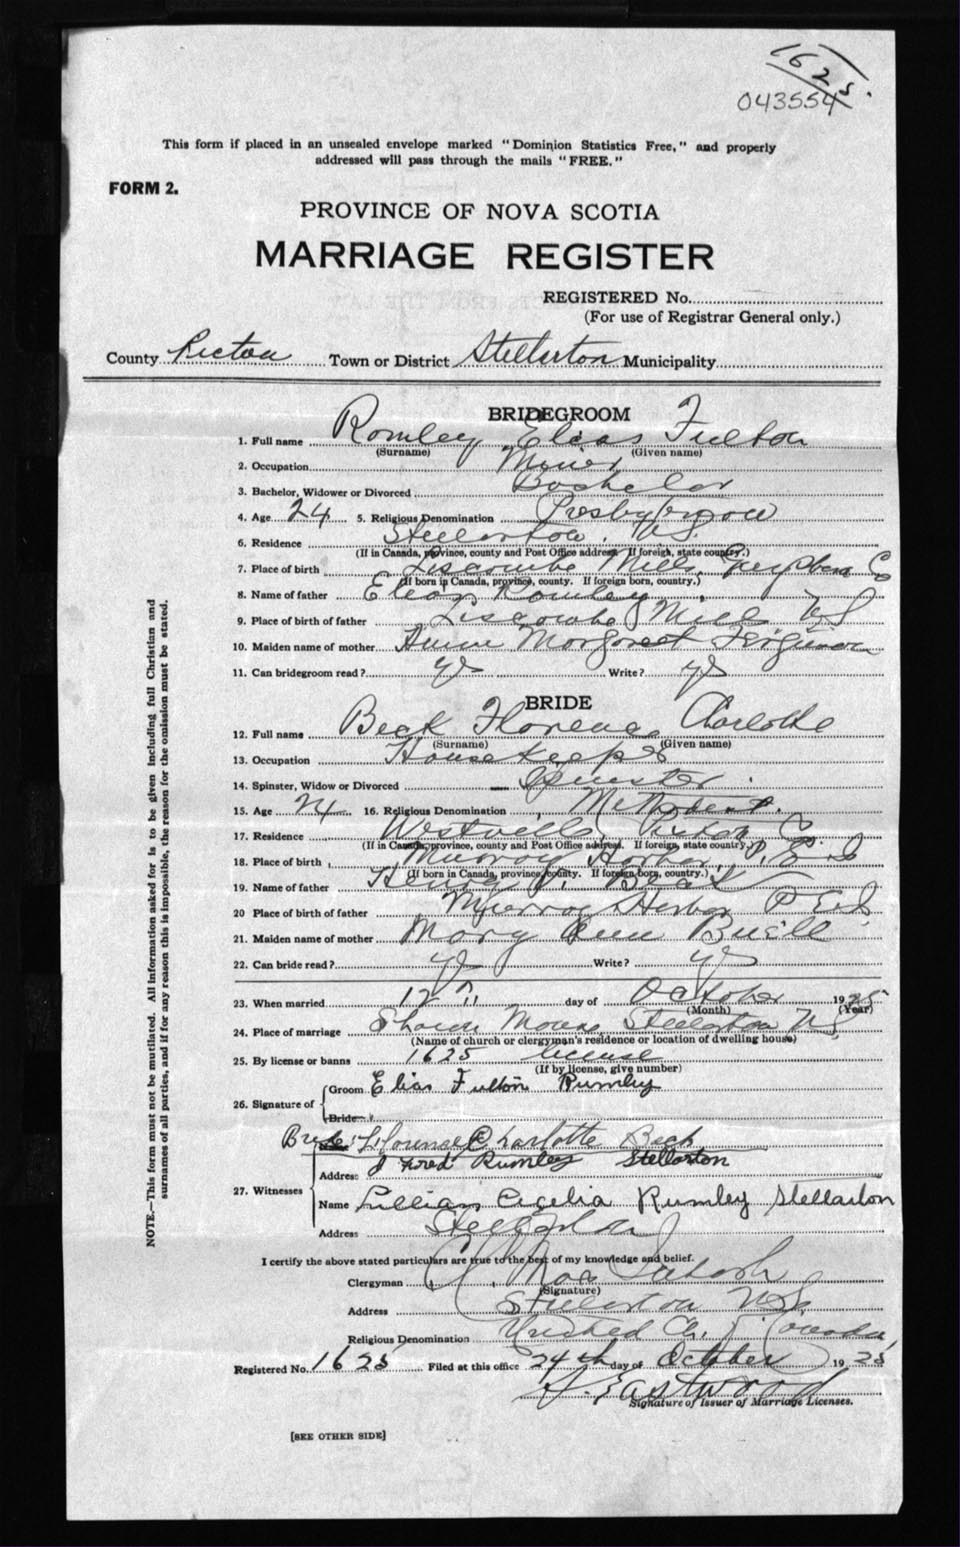 1625.
043554
This form if placed in an unsealed envelope marked "Dominion Statistics Free," and properly
addressed will pass through the mails "FREE."
FORM 2.
PROVINCE OF NOVA SCOTIA
MARRIAGE REGISTER
REGISTERED No.
(For use of Registrar General only.)
County Pictou Town or District Stellarton Municipality
BRIDEGROOM
1. Full name Romley Elias Fulton
(Surname) (Given name)
2. Occupation Miner
3. Bachelor, Widower or Divorced Bachelor
4. Age 24 5. Religious Denomination Presbyterian
6. Residence Stellarton, N.S.
(If in Canada, province, county and Post Office address. If foreign, state country.)
7. Place of birth Liscombe Mills, Co
(If born in Canada, province, county. If foreign born, country.)
8. Name of father Elias Romley
9. Place of birth of father Liscombe Mills N S
10. Maiden name of mother Annie Margaret Ferguson
11. Can bridegroom read? yes Write? yes
BRIDE
12. Full name Beck Florence Charlotte
(Surname) (Given name)
13. Occupation Housekeeper
14. Spinster, Widow or Divorced Spinster
15. Age 24 16. Religious Denomination Methodist.
17. Residence Westville, Pictou Co
(If in Canada, province, county and Post Office address. If foreign, state country.)
18. Place of birth Murray Harbor, P. E. I
(If born in Canada, province, county. If foreign born, country.)
19. Name of father Henry Beck
20 Place of birth of father Murray Harbor P E I
21. Maiden name of mother Mary Ann Buell
22. Can bride read? yes Write? yes
23. When married 12 day of October 1925
(Month) (Year)
24. Place of marriage Stellarton N S
(Name of church or clergyman's residence or location of dwelling house)
25. By license or banns 1625 license
(If by license, give number)
26. Signature of Groom Elias Fulton Rumley
Bride
Bride: Florence Charlotte Beck
27. Witnesses
Address J Fred Rumley Stellarton
Name Lillian Cecelia Rumley Stellarton
Address Stellarton
I certify the above stated particulars are true to the best of my knowledge and belief.
Clergyman
(Signature)
Address Stellarton N.S.
Religious Denomination United Ch. of Canada
Registered No. 1625 Filed at this office 24th day of October 1925
Eastwood
Signature of Issuer of Marriage Licenses.
[SEE OTHER SIDE]
NOTE.—This form must not be mutilated. All information asked for is to be given including full Christian and
surnames of all parties, and if for any reason this is impossible, the reason for the omission must be stated.